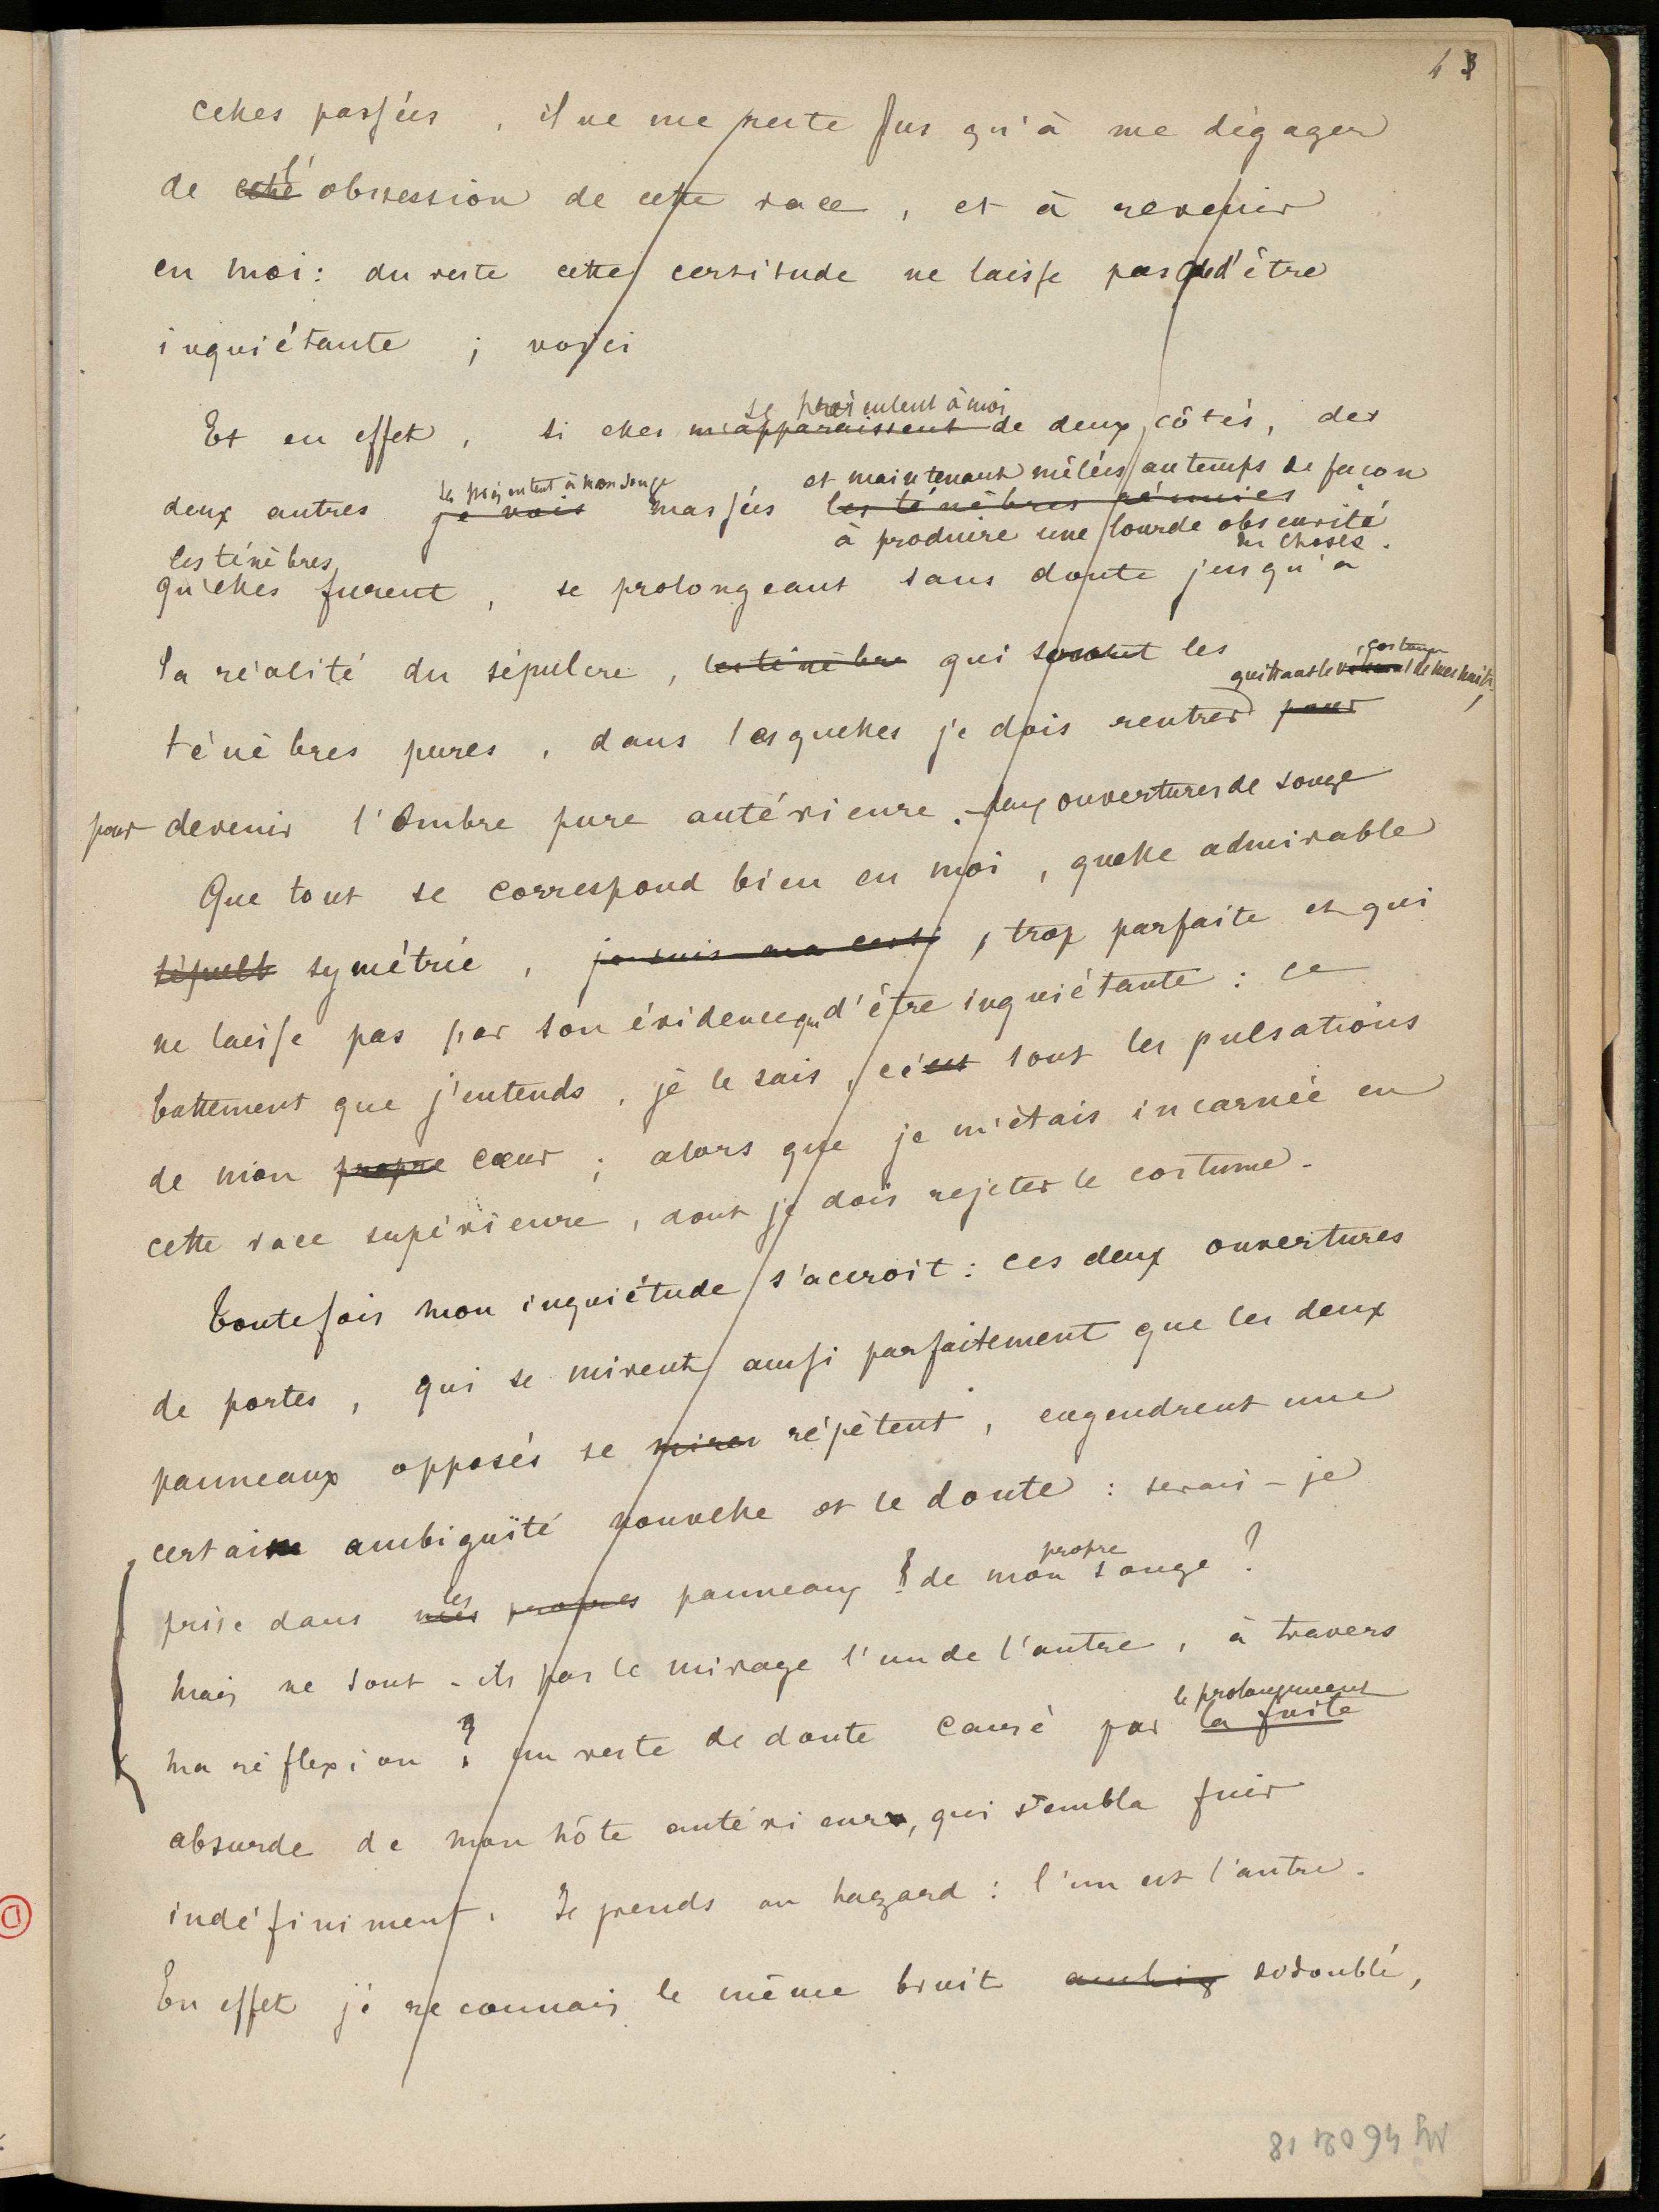 43
celles passées, il ne me reste plus qu'à me dégager
de cette l'obsession de cette race, et à revenir
en moi : du reste cette certitude ne laisse pas de d'être
inquiétante ; voici
se présentent à moi
Et en effet, si elles m'apparaissent de deux côtés, des
se présentent à mon songe et maintenant mêlées au temps de façon
deux autres je vois massées les ténèbres réunies
à produire une lourde obscurité
les ténèbres des choses.
qu'elles furent, se prolongeant sans doute jusqu'à
la réalité du sépulcre, les ténèbres qui seront les
costume
quittant le de mes nuits,
ténèbres pures, dans lesquelles je dois rentrer pour
pour devenir l'Ombre pure antérieure. — deux ouvertures de songe
Que tout se correspond bien en moi, quelle admirable
sépult symétrie, je suis ma certi, trop parfaite et qui
ne laisse pas par son évidence d'être inquiétante : ce
battement que j'entends, je le sais, c'est sont les pulsations
de mon propre cœur ; alors que je m'étais incarnée en
cette race supérieure, dont je dois rejeter le costume.
Toutefois mon inquiétude s'accroit : ces deux ouvertures
de portes, qui se mirent aussi parfaitement que les deux
panneaux opposés se miren répètent, engendrent une
certaine ambiguïté nouvelle et le doute : serais-je
les propre
prise dans mes propres panneaux ! de mon songe ?
mais ne sont-ils pas le mirage l'un de l'autre, à travers
le prolongement
ma réflexion ? un reste de doute causé par la fuite
absurde de mon hôte antérieur, qui sembla fuir
indéfiniment. Je prends au hazard : l'un est l'autre.
En effet je reconnais le même bruit ambig dédoublé,
D
My 46021 18